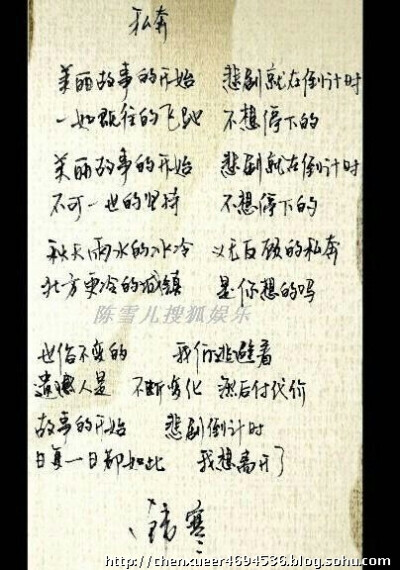 私奔
美丽故事的开始 悲剧就在倒计时
一如既往的飞驰 不想停下的
美丽故事的开始 悲剧就在倒计时
不可一世的坚持 不想停下的
秋天雨水的冰冷 义无反顾的私奔
北方更冷的城镇 是你想的吗
陈雪儿搜狐娱乐
世俗不变的 我们逃避着
遗憾人是 不断变化 然后付代价
故事的开始 悲剧倒计时
日复一日都如此 我想离开了
寒
http://chenxueer4694536.blog.sohu.com